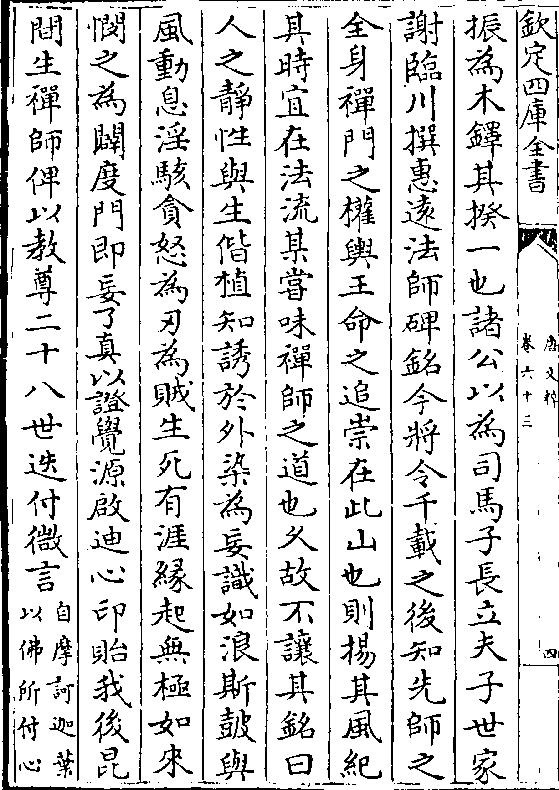 欽定四庫全書
唐文粹
卷六十三
四
振為木鐸其揆一也諸公以為司馬子長立夫子世家
謝臨川撰惠遠法師碑銘今將令千載之後知先師之
全身禪門之權輿王命之追崇在此山也則揚其風紀
其時宜在法流某嘗味禪師之道也久故不讓其銘曰
人之靜性與生偕植知誘於外染為妄識如浪斯鼓與
風動息淫駭貪怒為刃為賊生死有涯緣起無極如來
憫之為闢度門即妄了真以證覺源啟迪心印貽我後昆
間生禪師俾以教尊二十八世迭付微言
自摩訶迦葉
以佛所付心